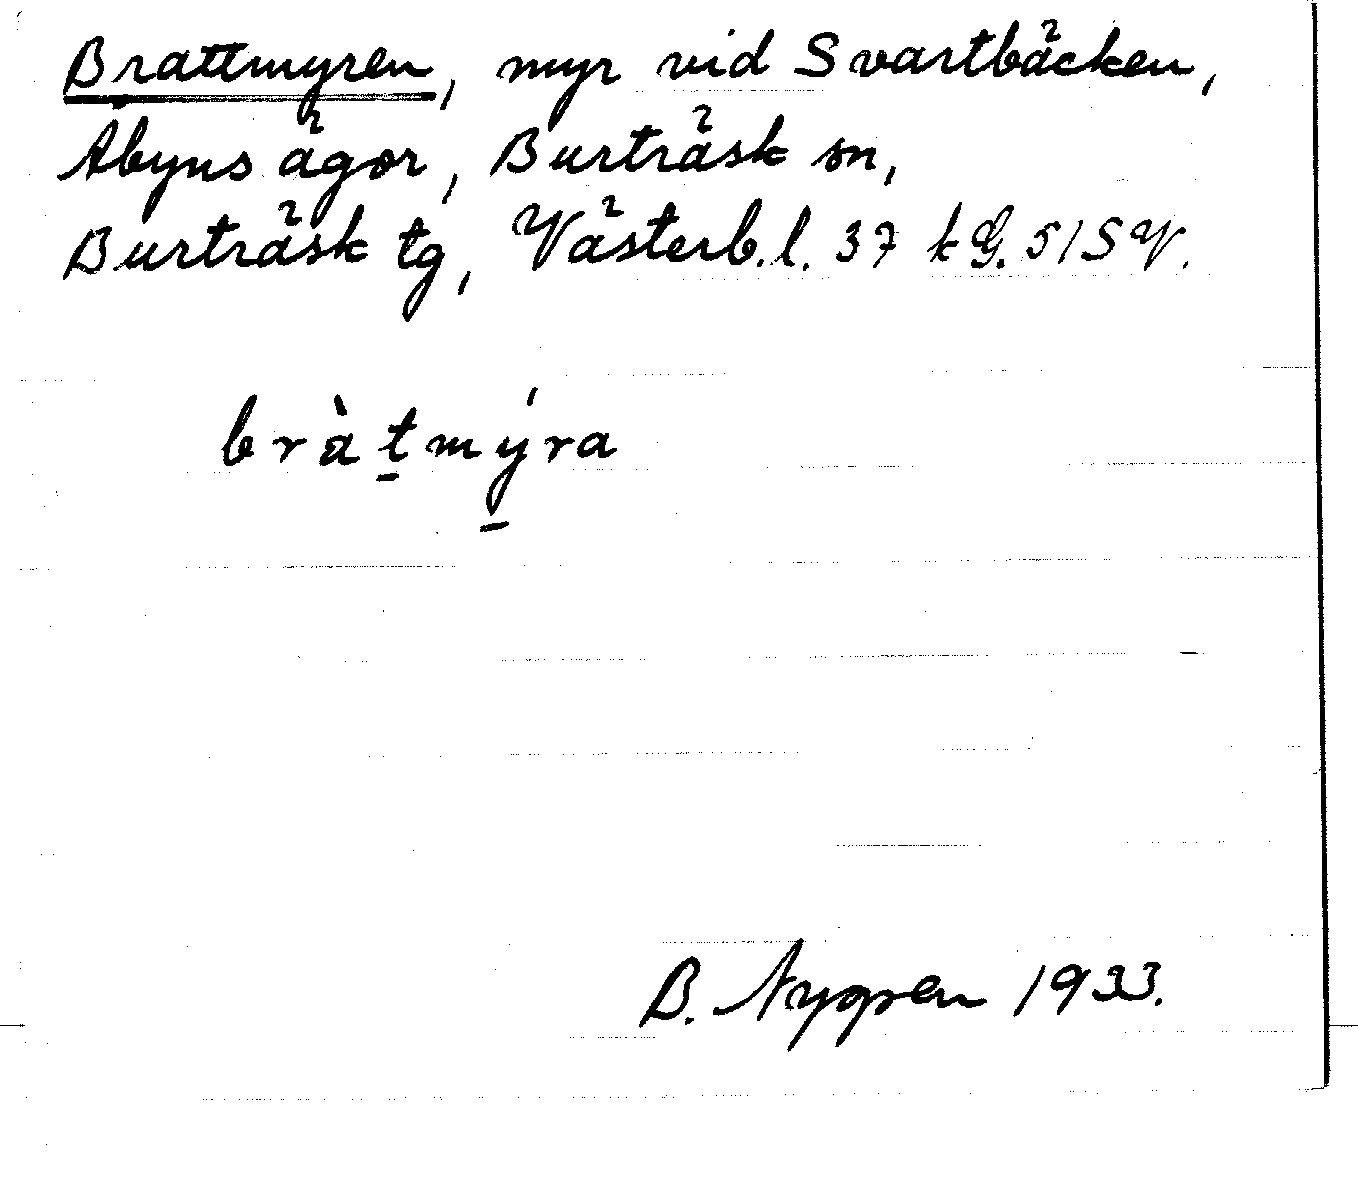 Brattmyren, myr vid Svartbäcken,
Åbyns ägor, Burträsk sn,
Burträsk tg, Västerb.l. 37 k G. 51 SV.
bràt̲mý̲ra
B. Nygren 1933.